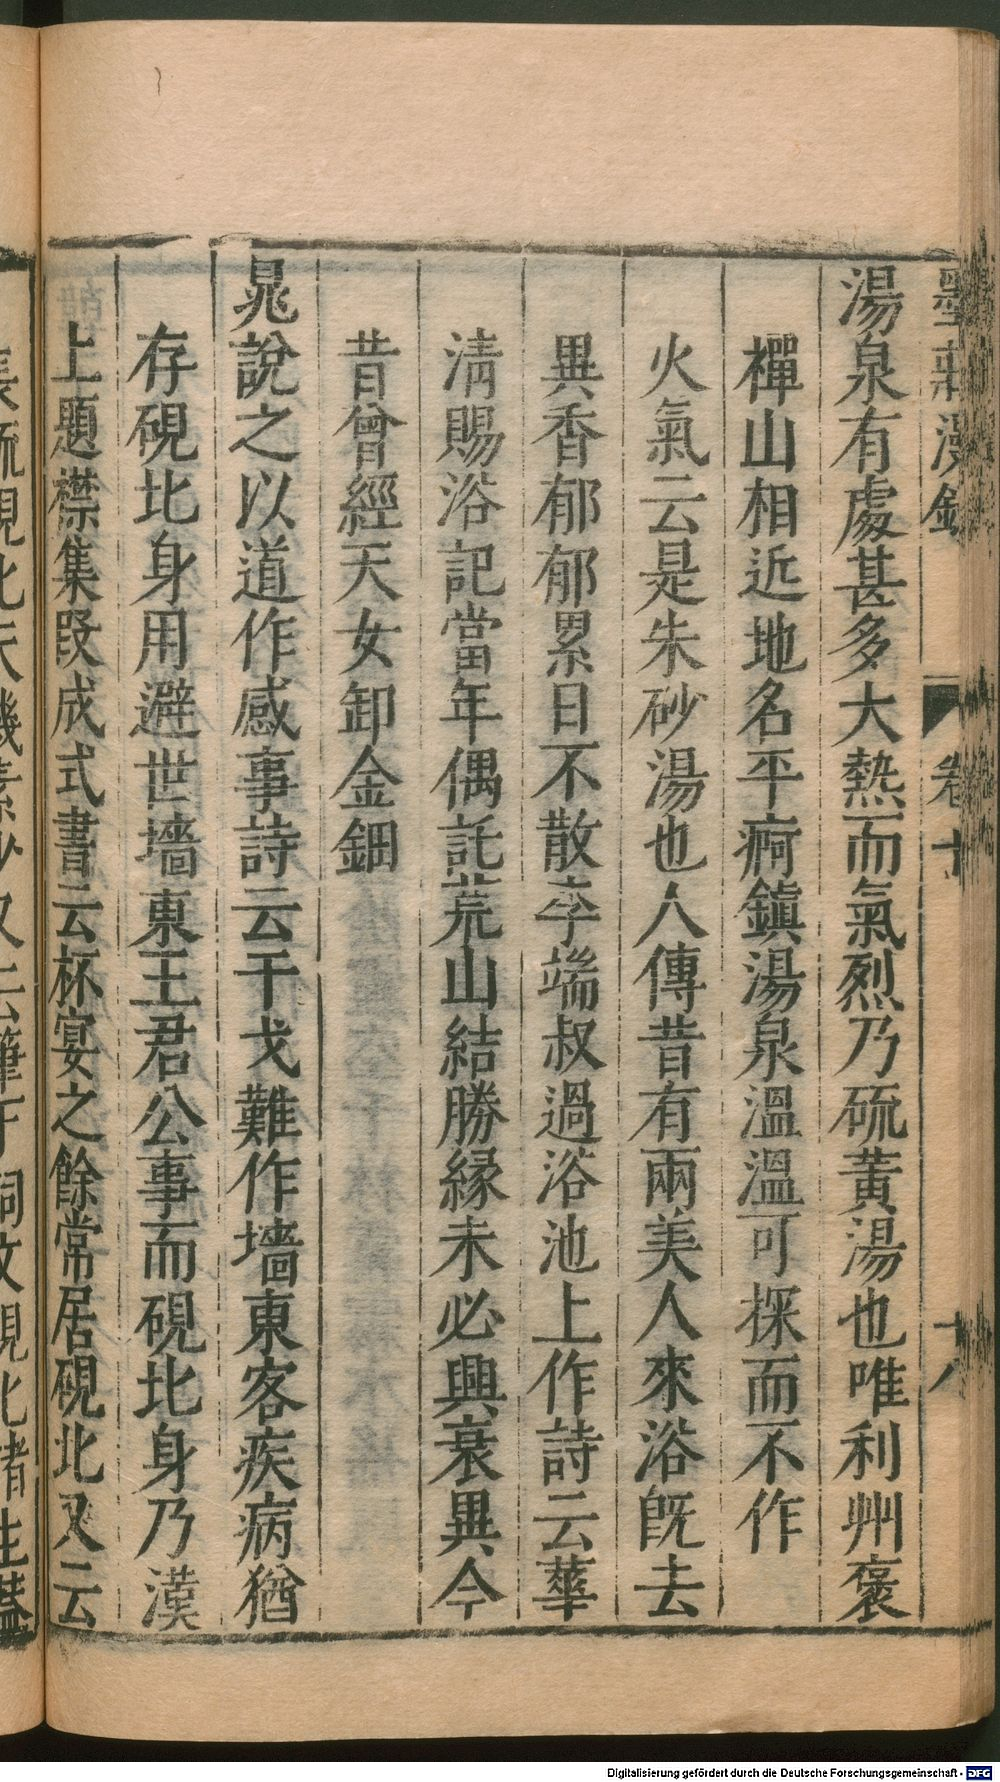 墨莊漫錄 卷十 十八
湯泉有處甚多大熱而氣烈乃硫黃湯也唯利州褒
禪山相近地名平痾鎮湯泉溫溫可探而不作
火氣云是朱砂湯也人傳昔有兩美人來浴旣去
異香郁郁累日不散李端叔過浴池上作詩云華
淸賜浴記當年偶託荒山結勝緣未必興衰異今
昔曾經天女卸金鈿
晁說之以道作感事詩云干戈難作墻東客疾病猶
存硯北身用避世墻東王君公事而硯北身乃漢
上題襟集叚成式書云杯宴之餘常居硯北又云
Digitalisierung gefördert durch die Deutsche Forschungsgemeinschaft - DFG